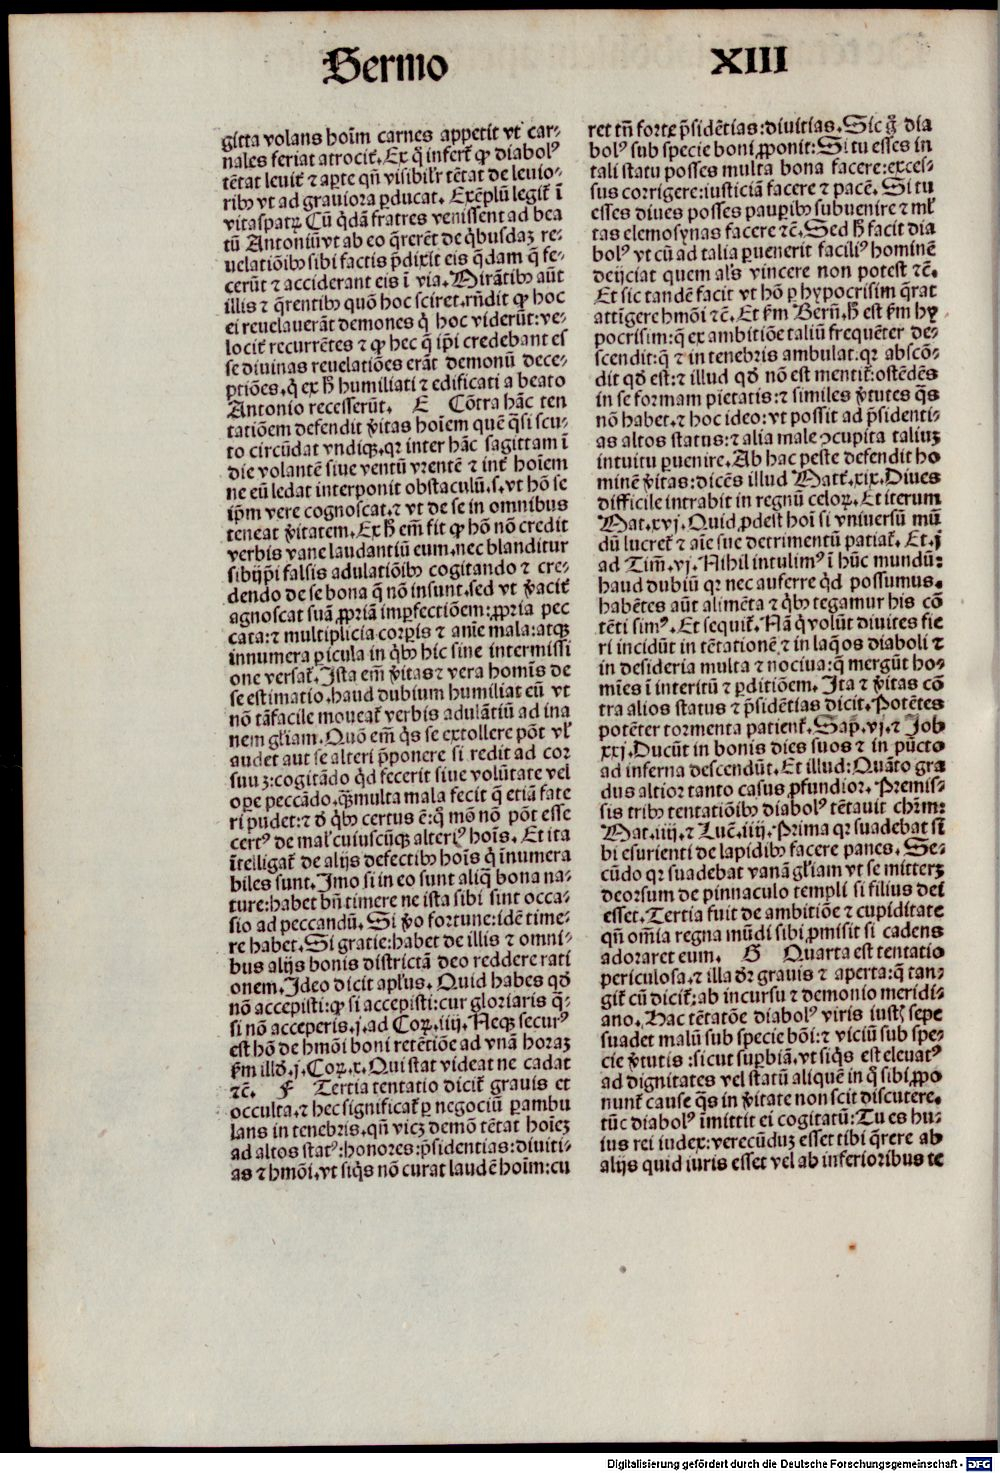 Sermo XIII
gitta volans hoīm carnes appetit vt car⸗
nales feriat atrocit᷑. Ex q̊ infert᷑ ꝙ diabolꝰ
tētat leuit᷑ ⁊ aꝑte qn̄ visibilr̄ tētat de leuio⸗
ribꝰ vt ad grauiora ꝑducat. Exēplū legit᷑ ī
vitaspatꝝ Cū q̇dā fratres venissent ad bea
tū Antoniū vt ab eo q̄rerēt de q̇busdaꝫ re⸗
uelatiōibꝰ sibi factis p̄dixit eis q̇dam q̄ fe⸗
cerūt ⁊ acciderant eis ī via. Mirātibꝰ aūt
illis ⁊ q̄rentibꝰ quō hoc sciret. rn̄dit ꝙ hoc
ei reuelauerāt demones q̇ hoc viderūt: ve⸗
locit᷑ recurrētes ⁊ ꝙ hec q̄ ip̄i credebant es
se diuinas reuelatiōes erāt demonū dece⸗
ptiōes. q̇ ex h̄ humiliati ⁊ edificati a beato
Antonio recesserūt. E Cōtra hāc ten
tatiōem defendit v̄itas hoīem quē q̄si scu⸗
to circūdat vndiqꝫ. qꝛ inter hāc sagittam ī
die volantē siue ventū vrentē ⁊ int᷑ hoīem
ne eū ledat interponit obstaculū. s. vt hō se
ip̄m vere cognoscat. ⁊ vt de se in omnibus
teneat v̄itatem. Ex h̄ em̄ fit ꝙ hō nō credit
verbis vane laudantiū eum. nec blanditur
sibijp̄i falsis adulatiōibꝰ cogitando ⁊ cre⸗
dendo de se bona q̄ nō insunt. sed vt v̄acit᷑
agnoscat suā ꝓpriā imꝑfectiōem: ꝓpria pec
cata: ⁊ multiplicia corꝑis ⁊ anīe mala: atqꝫ
innumera ꝑicula in q̇bꝰ hic sine intermissi
one versat᷑. Ista em̄ v̄itas ⁊ vera homīs de
se estimatio. haud dubium humiliat eū vt
nō tāfacile moueat᷑ verbis adulātiū ad ina
nem gl̄iam. Quō em̄ q̇s se extollere pōt vl̓
audet aut se alteri p̄ponere si redit ad cor
suuꝫ: cogitādo q̇d fecerit siue volūtate vel
oꝑe peccādo. qꝫmulta mala fecit q̄ etiā fate
ri pudet: ⁊ d̓ q̇bꝰ certus ē: q̊ mō nō pōt esse
certꝰ de mal̓ cuiuscūqꝫ alteriꝰ hoīs. Et ita
ītelligat᷑ de alijs defectibꝰ hoīs q̇ īnumera
biles sunt. Imo si in eo sunt aliq̄ bona na⸗
ture: habet bn̄ timere ne ista sibi sint occa⸗
sio ad peccandū. Si v̄o fortune: idē time⸗
re habet. Si gratie: habet de illis ⁊ omni⸗
bus alijs bonis districtā deo reddere rati
onem. Ideo dicit apl̓us. Quid habes qd̓
nō accepisti: ꝙ si accepisti: cur gloriaris q̄⸗
si nō acceperis. j. ad Coꝝ. iiij. Neqꝫ securꝰ
est hō de hmōi boni retētiōe ad vnā horaꝫ
ẜm illd̓. j. Coꝝ. x. Qui stat videat ne cadat
⁊c̄. F Tertia tentatio dicit᷑ grauis et
occulta. ⁊ hec significat᷑ ꝑ negociū ꝑambu
lans in tenebris. qn̄ vicꝫ demō tētat hoīeꝫ
ad altos statꝰ: honores: p̄sidentias: diuiti⸗
as ⁊ hmōi. vt siq̇s nō curat laudē hoīm: cu
ret tn̄ forte p̄sidētias: diuitias. Sic g̊ dia
bolꝰ sub specie boni ꝓponit: Si tu esses in
tali statu posses multa bona facere: exces⸗
sus corrigere: iusticiā facere ⁊ pacē. Si tu
esses diues posses pauꝑibꝰ subuenire ⁊ ml̓
tas elemosynas facere ⁊c̄. Sed h̄ facit dia
bolꝰ vt cū ad talia ꝑuenerit faciliꝰ hominē
deijciat quem al̓s vincere non potest ⁊c̄.
Et sic tandē facit vt hō ꝑ hypocrisim q̄rat
attīgere hmōi ⁊c̄. Et ẜm Berñ. h̄ est ẜm hy
pocrisim: q̄ ex ambitiōe taliū frequēter de⸗
scendit: q̄ ⁊ in tenebris ambulat: qꝛ abscō⸗
dit qd̓ est: ⁊ illud qd̓ nō est mentit᷑: ostēdēs
in se formam pietatis: ⁊ similes v̄tutes q̄s
nō habet. ⁊ hoc ideo: vt possit ad p̄sidenti⸗
as altos status: ⁊ alia male ꝯcupita taliuꝫ
intuitu ꝑuenire. Ab hac peste defendit ho
minē v̄itas: dicēs illud Matt᷑. xix. Diues
difficile intrabit in regnū celoꝝ. Et iterum
Mat. xvj. Quid ꝓdest hoī si vniuersū mū
dū lucret᷑ ⁊ aīe sue detrimentū patiat᷑. Et. j
ad Tim̄. vj. Nihil intulimꝰ ī hūc mundū:
haud dubiū qꝛ nec auferre q̇d possumus.
habētes aūt alimēta ⁊ q̇bꝰ tegamur his cō
tēti simꝰ. Et sequit᷑. Nā q̇ volūt diuites fie
ri incidūt in tētationē ⁊ in laq̄os diaboli ⁊
in desideria multa ⁊ nociua: q̄ mergūt ho⸗
mīes ī interitū ⁊ ꝑditiōem. Ita ⁊ v̄itas cō
tra alios status ⁊ p̄sidētias dicit. Potētes
potēter tormenta patient᷑. Sap̄. vj. ⁊ Job
xxj. Ducūt in bonis dies suos ⁊ in pūcto
ad inferna descendūt. Et illud: Quāto gra
dus altior tanto casus ꝓfundior. Premis⸗
sis tribꝰ tentatiōibꝰ diabolꝰ tētauit chr̄m:
Mat. iiij. ⁊ Luc̄. iiij. Prima qꝛ suadebat si
bi esurienti de lapidibꝰ facere panes. Se⸗
cūdo qꝛ suadebat vanā gl̄iam vt se mitterꝫ
deorsum de pinnaculo templi si filius dei
esset. Tertia fuit de ambitiōe ⁊ cupiditate
qn̄ om̄ia regna mūdi sibi ꝓmisit si cadens
adoraret eum. G Quarta est tentatio
periculosa. ⁊ illa dr̄ grauis ⁊ aperta: q̄ tan⸗
git᷑ cū dicit᷑: ab incursu ⁊ demonio meridi⸗
ano. Hac tētatōe diabolꝰ viris iustꝭ sepe
suadet malū sub specie bōi: ⁊ viciū sub spe⸗
cie v̄tutis: sicut suꝑbiā. vt siq̇s est eleuatꝰ
ad dignitates vel statū aliquē in q̊ sibi ꝓpo
nunt᷑ cause q̄s in v̄itate non scit discutere.
tūc diabolꝰ īmittit ei cogitatū: Tu es hu⸗
ius rei iudex: verecūduꝫ esset tibi q̄rere ab
alijs quid iuris esset vel ab inferioribus te
Digitalisierung gefördert durch die Deutsche Forschungsgemeinschaft - DFG